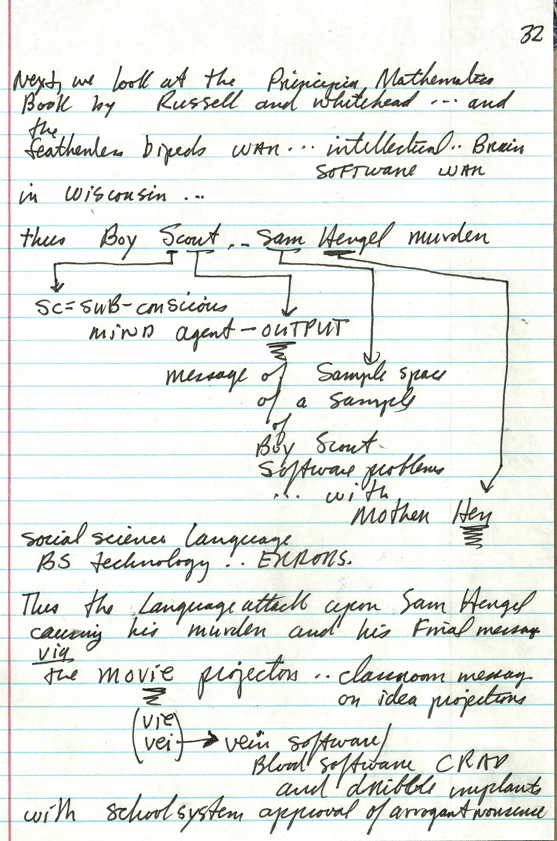 32
Next, we look at the Prinicipia Mathematics
Book by Russell and Whitehead ... and
the
featherless bipeds WAR ... intellectual .. Brain
SOFTWARE WAR
in Wisconsin ...
thus Boy Scout ... Sam Hengel murder
SC = SUB-conscious
MIND agent - OUTPUT
message of
Sample space
of a Sample
of
Boy Scout
Software problems
... with
Mother Hen
Social science Language
BS technology .. ERRORS.
Thus the Language attack upon Sam Hengel
causing his murder and his Final message
via
the movie projectors .. classroom message
on idea projections
(vie
vei) → vein software/
Blood software CRAP
and dribble implants
with school system approval of arrogant nonsense